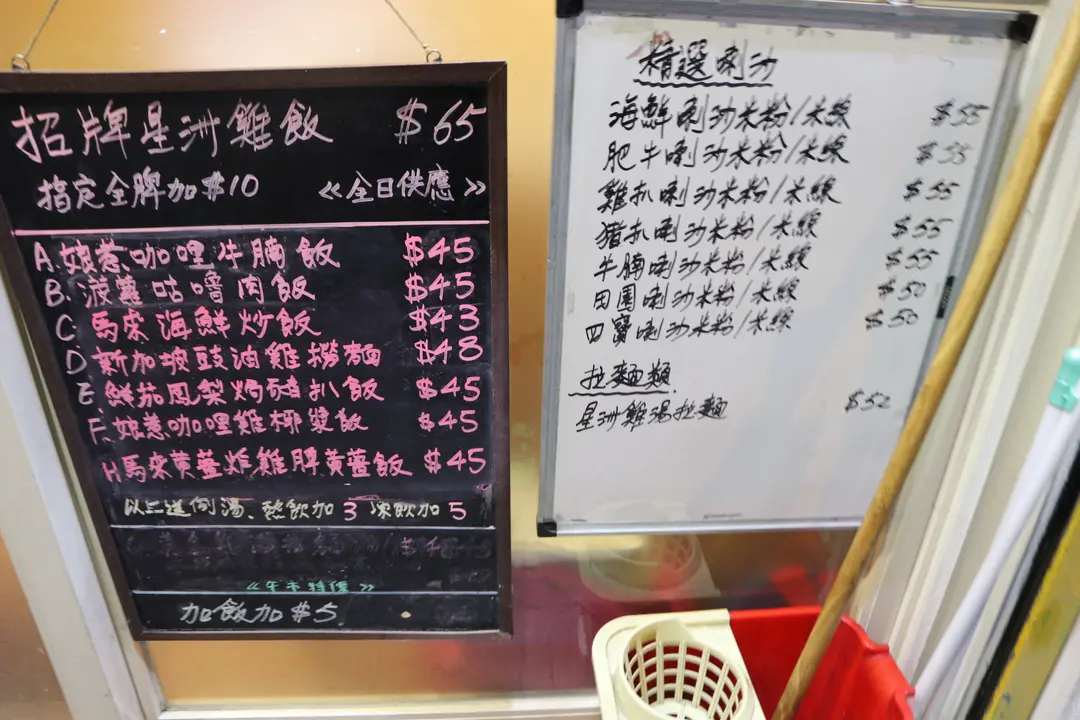 招牌星洲雞飯 $65
指定全髀加$10 《全日供應》
A. 娘惹咖哩牛腩飯 $45
B. 菠蘿咕嚕肉飯 $45
C. 馬來海鮮炒飯 $43
D 新加坡豉油雞撈麵 $48
E 鮮茄鳳梨焗豬扒飯 $45
F. 娘惹咖哩雞椰漿飯 $45
H 馬來黃薑炸雞髀黃薑飯 $45
以上送例湯、熱飲加3 凍飲加5
《午市特價》
加飯加$5
精選喇沙
海鮮喇沙米粉/米線 $55
肥牛喇沙米粉/米線 $55
雞扒喇沙米粉/米線 $55
豬扒喇沙米粉/米線 $55
牛腩喇沙米粉/米線 $55
田園喇沙米粉/米線 $50
四寶喇沙米粉/米線 $50
拉麵類
星洲雞湯拉麵 $52